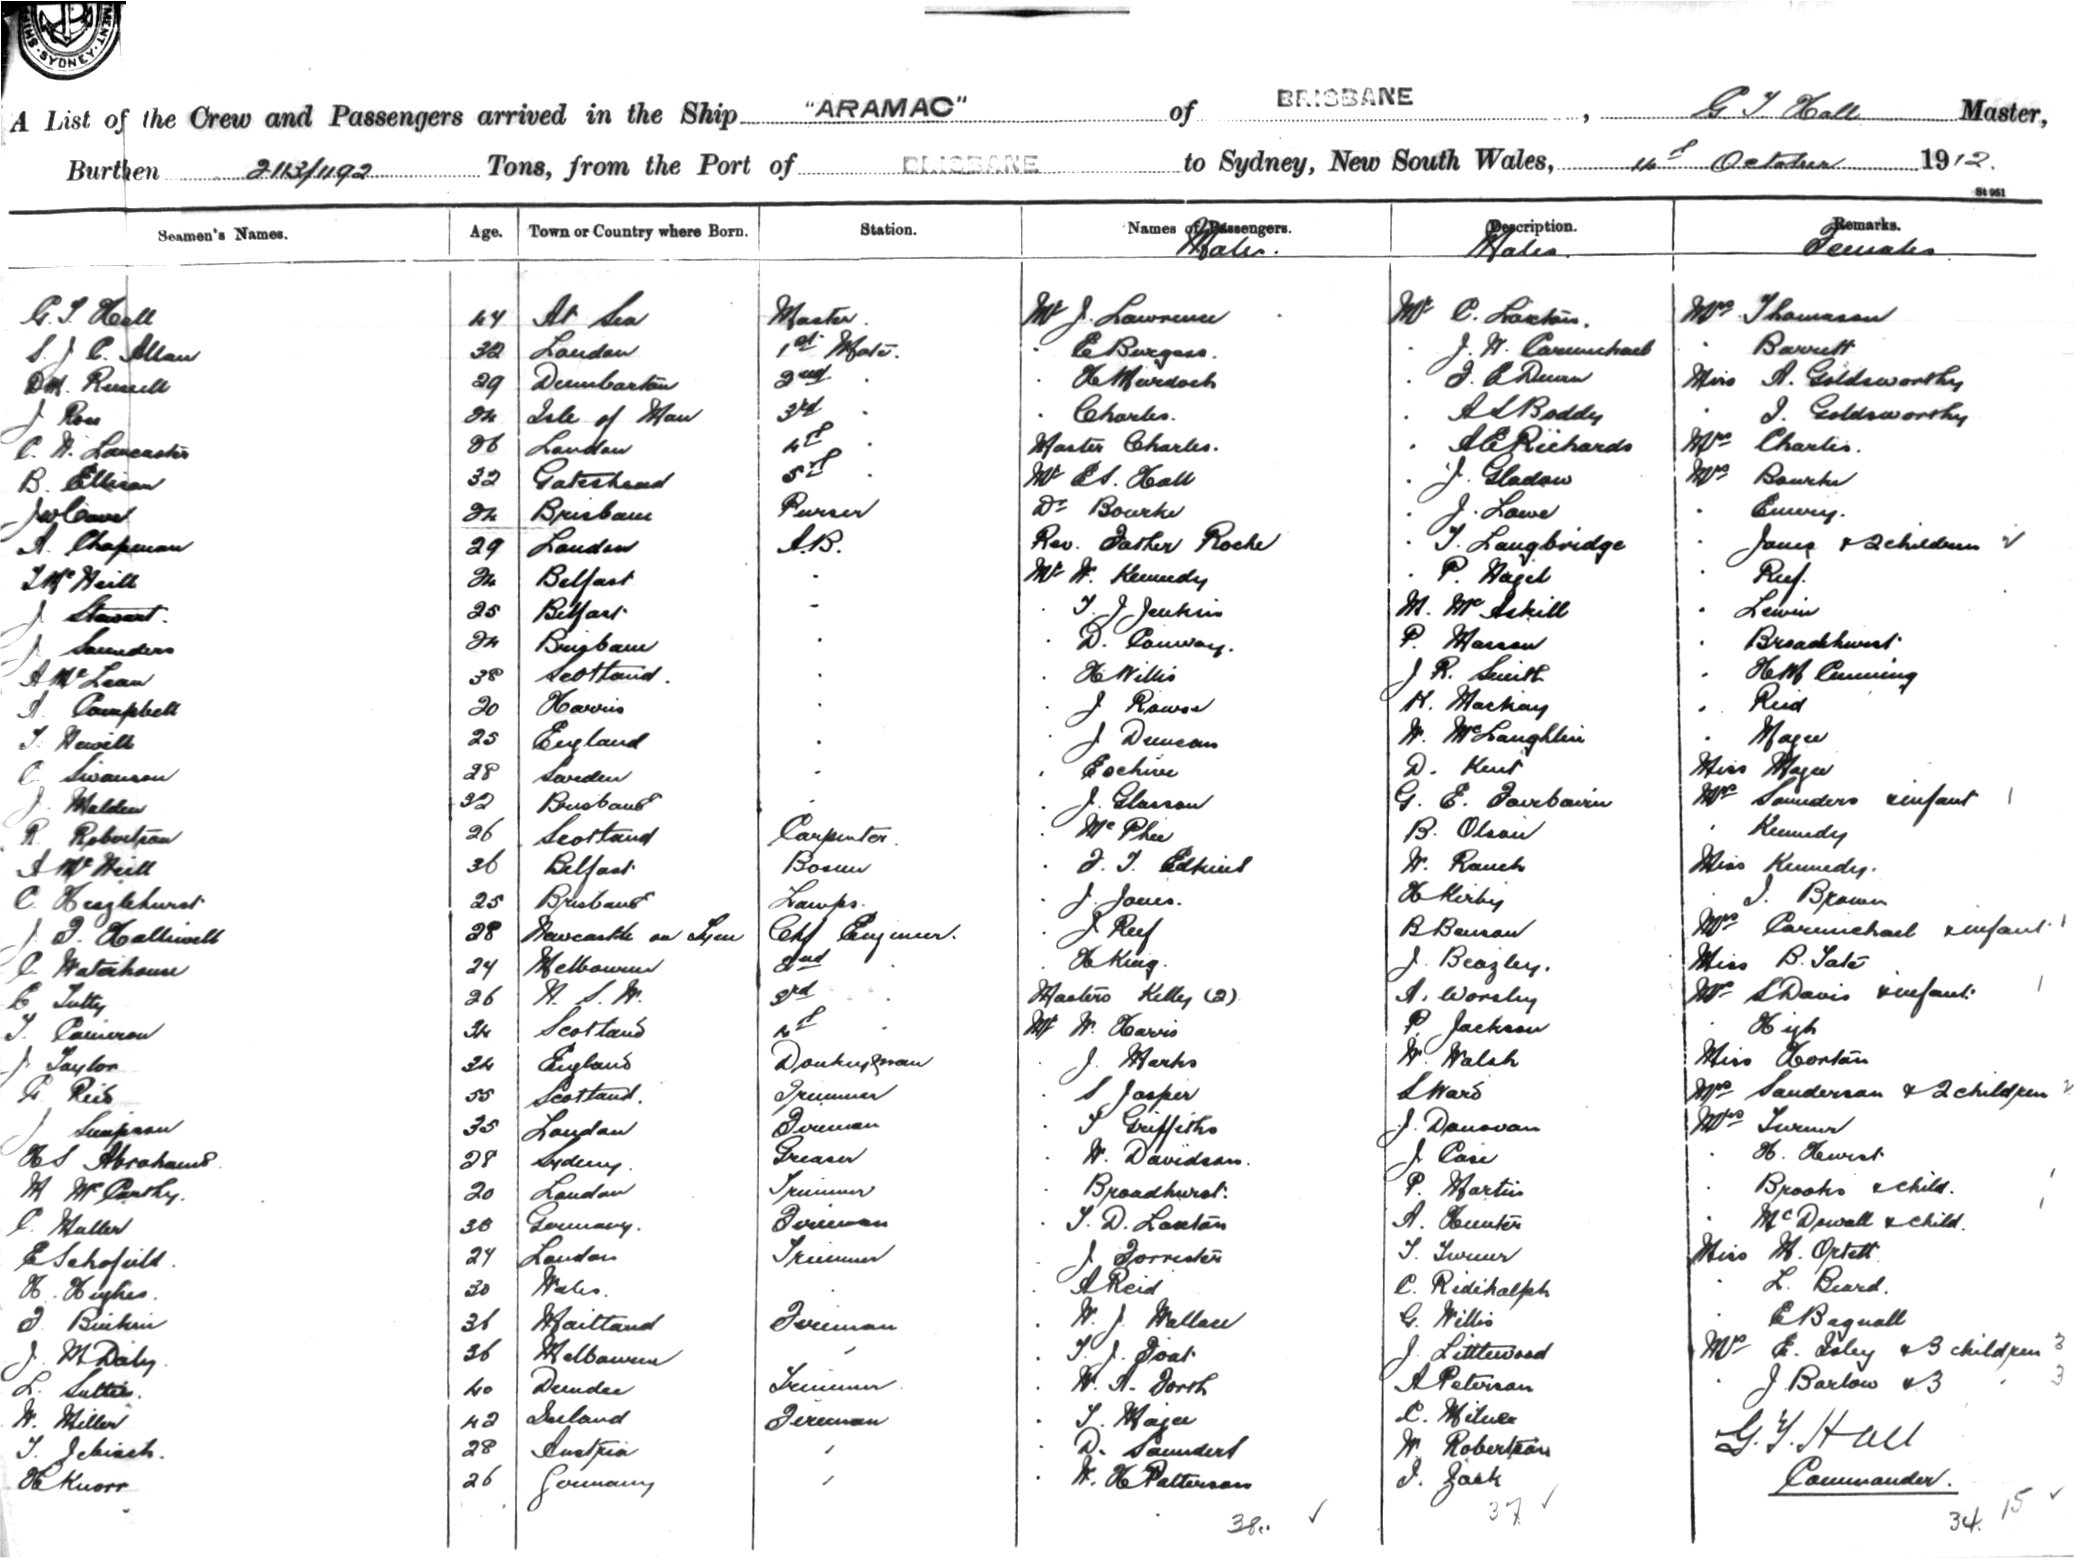 SYDNEY
A List of the Crew and Passengers arrived in the Ship "ARAMAC" of BRISBANE, G T Hall Master,
Burthen 2113/1192 Tons, from the Port of BRISBANE to Sydney, New South Wales, 4th October 1912.
St 951
Seamen's Names. Age. Town or Country where Born. Station. Names of Passengers. Description. Remarks.
Males. Males. Females
G. T. Hall 44 At Sea Master. Mr J. Lawrence Mr C. Laxton. Mrs Thomason
S. J. C. Allan 32 London 1st Mate. E Burgess. J. H. Carmichael Barrett
D M. Russell 29 Dumbarton 2nd H Murdoch Miss A. Goldsworthy
J Ross 24 Isle of Man 3rd Charles. A L Boddy J. Goldsworthy
C. H. Lancaster 26 London 4th Master Charles. A E Richards Mrs Charles.
B. Ellison 32 Gateshead 5th Mr E S. Hall J. Gladow Mrs Bourke
J W Cave 24 Brisbane Purser Dr Bourke J. Lowe Emery.
A. Chapman 29 London A.B. Rev. Father Roche T. Langbridge Jones & 2 children 2
T McNeill 24 Belfast Mr W. Kennedy P. Nagel Reef.
J Stewart. 25 Belfast T. J Jenkins M. McAskill Lewin
J Saunders 24 Brisbane D. Conway. P. Masson Broadhurst
A McLean 38 Scotland. H Willis J R. Smith H M Cumming
A. Campbell 20 Harris J Rowse H. Mackay Reid
T. Newell 25 England J Duncan W. McLaughlin Magee
C. Swanson 28 Sweden D. Kent Miss Magee
J. Malden 32 Brisbane J. Glasson G. E. Fairbairn Mrs Saunders & infant 1
R. Robertson 26 Scotland Carpenter. McPhee B. Olson Kennedy
A McNeill 36 Belfast Bosun F. T. Edkins W. Rauch Miss Kennedy.
C. Heazlehurst 25 Brisbane Lamps. J. Jones. H Kirby J. Brown
J. F. Halliwell 28 Newcastle on Tyne Chf Engineer. J Reef B Benson Mrs Carmichael & infant 1
C Waterhouse 24 Melbourne 2nd H King. J. Beazley. Miss B. Tate
C Tutty 26 N. S. W. 3rd Masters Kelly (2) A. Worsley Mrs S Davis & infant 1
T. Cameron 24 Scotland 4th Mr W. Harris P. Jackson High
J Taylor 34 England Donkeyman J. Marks W. Walsh Miss Horton
G. Reid 55 Scotland. Trimmer S Jasper S Ward Mrs Sanderson & 2 children 2
J Simpson 35 London Fireman T Griffiths J. Donovan Mrs Turner
H S Abrahams. 28 Sydney. Greaser W. Davidson. J Case H. Hurst
M McCarthy. 20 London Trimmer Broadhurst. P. Martin Brooks & child. 1
C. Muller 38 Germany. Fireman T. D. Laxton A. Hunter McDowall & child. 1
E Schofield. 24 London Trimmer J Forrester T. Turner Miss M.
H. Hughes. 30 Wales. A Reid C. Ridehalgh L. Beard.
F. 36 Maitland Fireman W. J. Wallace G. Willis E Bagnall
J. M Daly. 36 Melbourne T. J. J Littlewood Mrs E. Isley & 3 children 3
L. Suttie. 40 Dundee Trimmer W. A. Forth A Peterson J Barlow & 3 3
W. Miller 42 Ireland Fireman T. Magee C. Milne
T. 28 Austria D. Saunders W. Robertson G. T. Hall
H Knorr 26 Germany W. H Patterson J. Zack Commander.
38. 37 34. 15